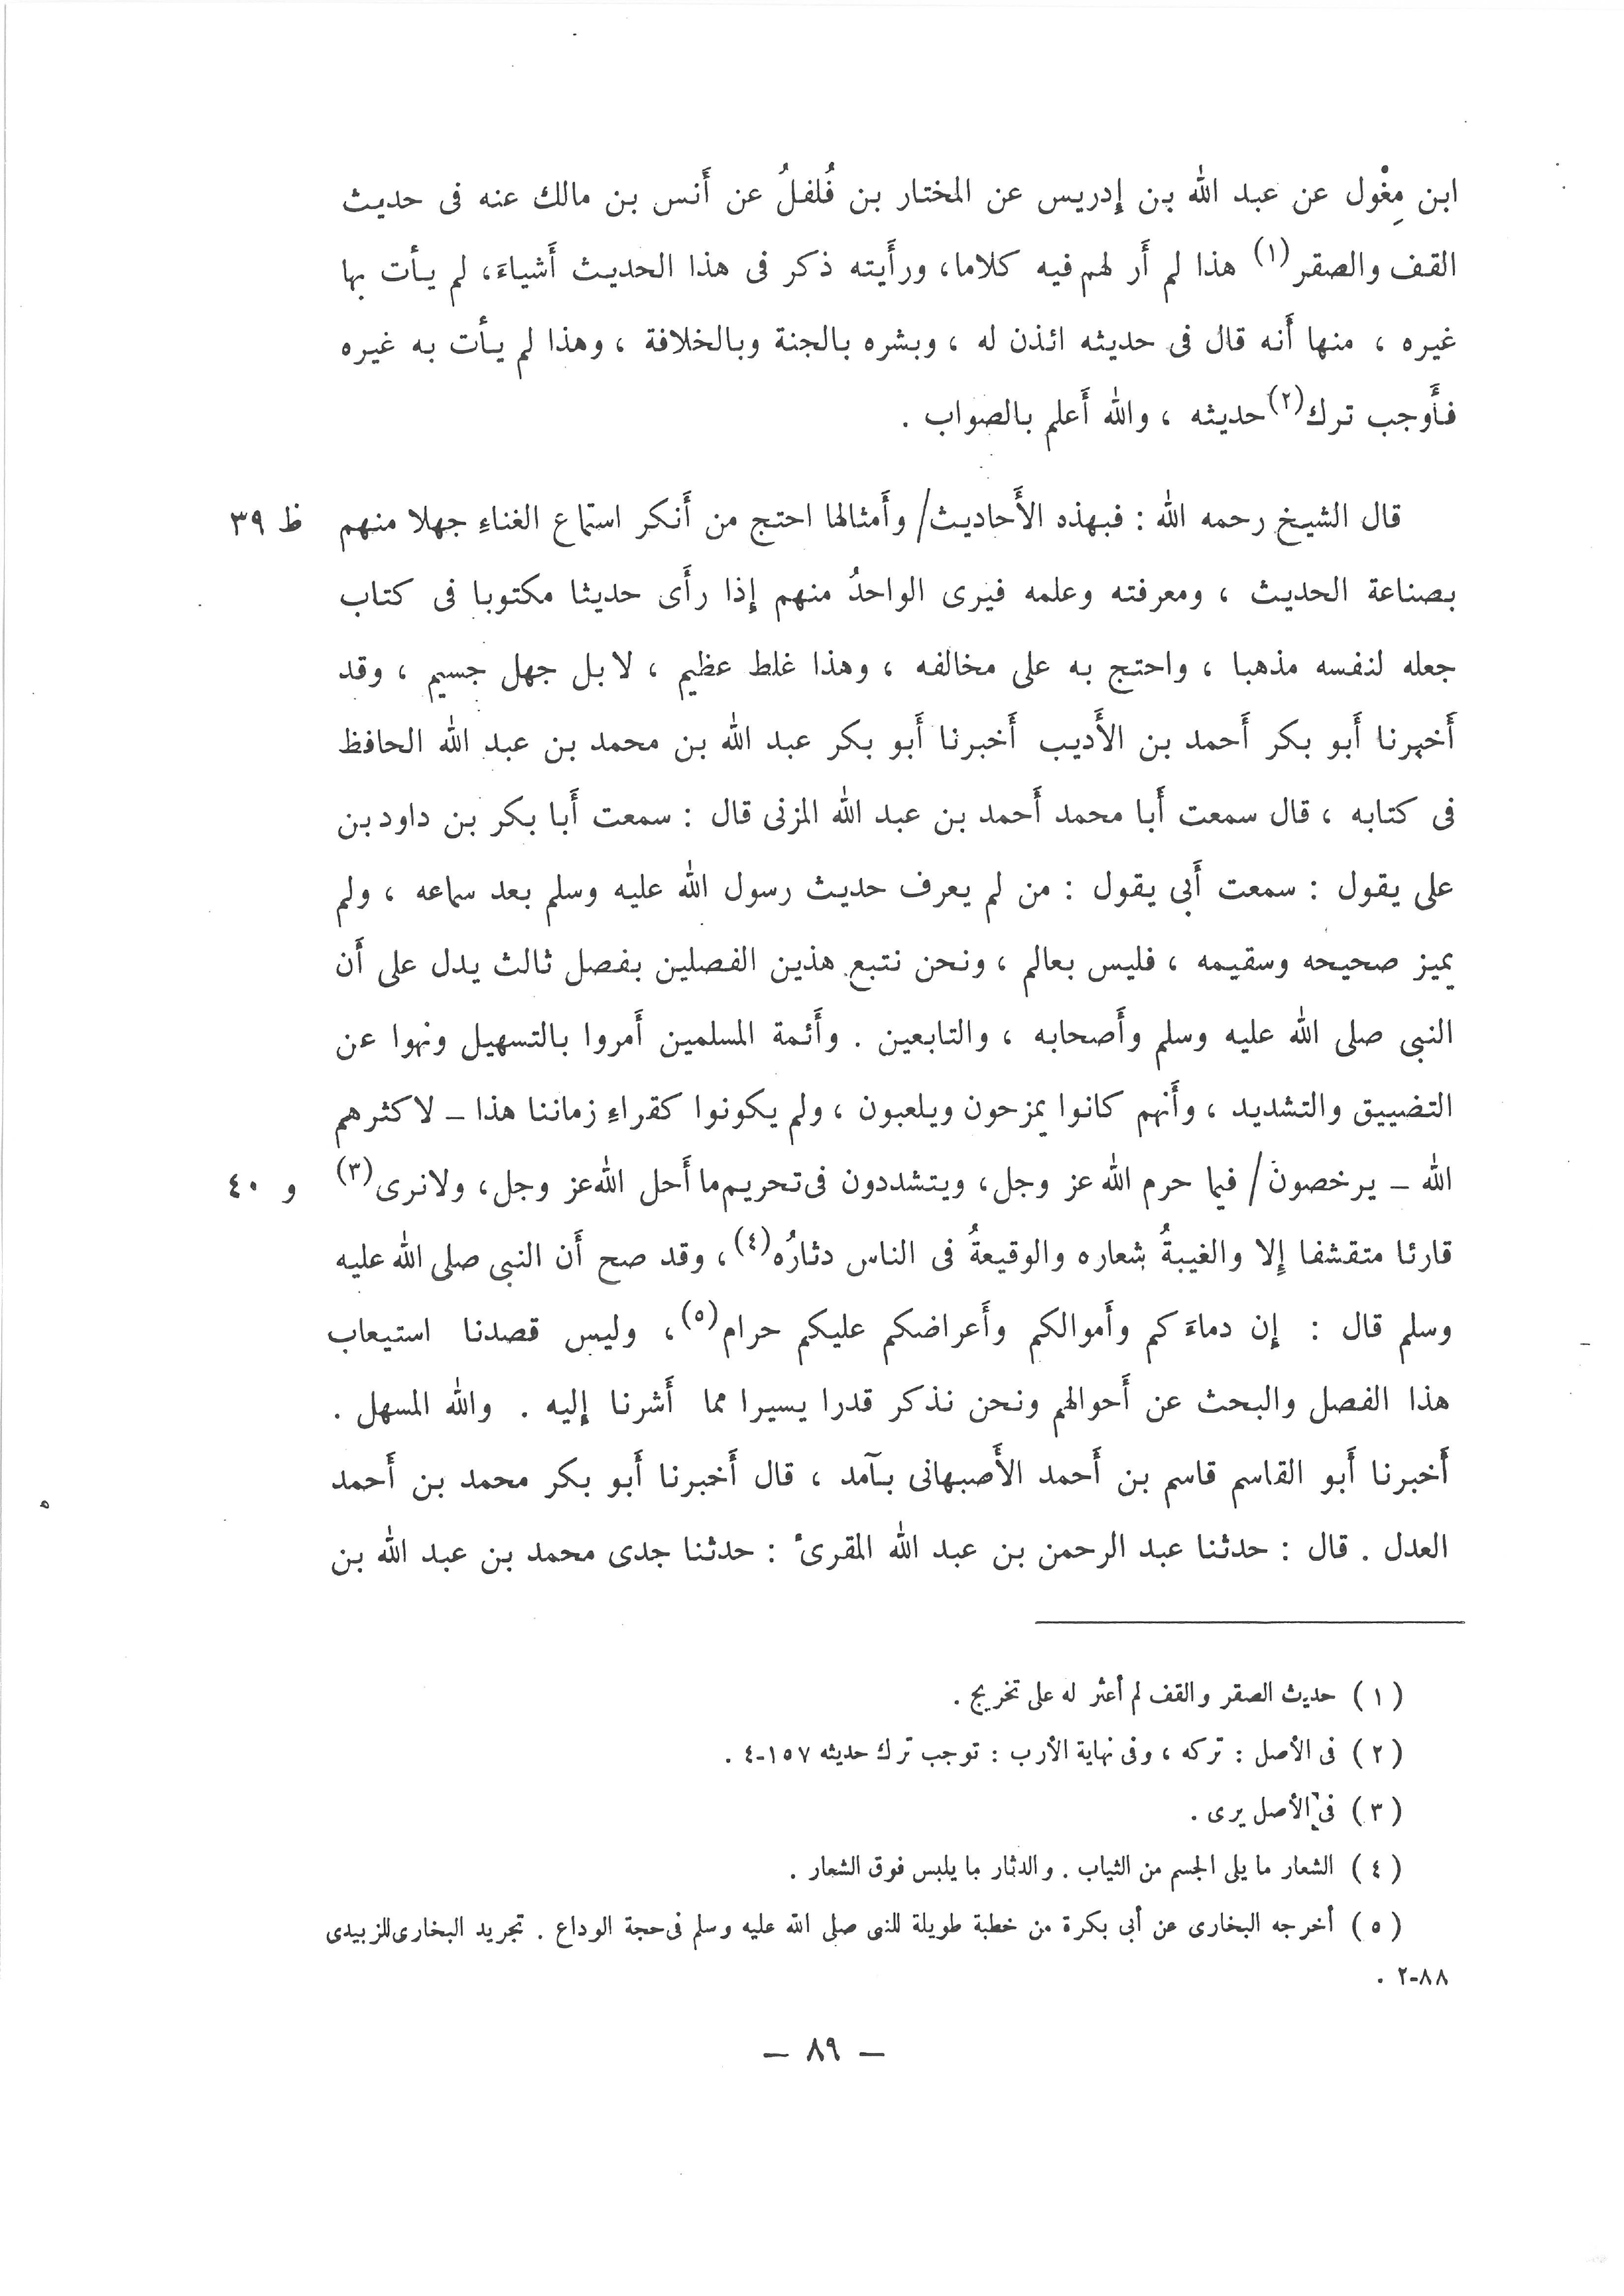 ابن مِغْول عن عبد الله بن إدريس عن المختار بن فُلفلُ عن أَنس بن مالك عنه فى حديث
القف والصقر(١) هذا لم أَر لهم فيه كلاما، ورأَيته ذكر فى هذا الحديث أَشياءَ، لم يأت بها
غيره ، منها أَنه قال فى حديثه ائذن له ، وبشره بالجنة وبالخلافة ، وهذا لم يأت به غيره
فأَوجب ترك(٢) حديثه ، والله أَعلم بالصواب .
قال الشيخ رحمه الله : فبهذه الأَحاديث/ وأَمثالها احتج من أَنكر استماع الغناءِ جهلا منهم ظ ٣٩
بصناعة الحديث ، ومعرفته وعلمه فيرى الواحدُ منهم إذا رأَى حديثا مكتوبا فى كتاب
جعله لنفسه مذهبا ، واحتج به على مخالفه ، وهذا غلط عظيم ، لا بل جهل جسيم ، وقد
أَخبرنا أَبو بكر أَحمد بن الأَديب أَخبرنا أَبو بكر عبد الله بن محمد بن عبد الله الحافظ
فى كتابه ، قال سمعت أَبا محمد أَحمد بن عبد الله المزنى قال : سمعت أَبا بكر بن داود بن
على يقول : سمعت أَبى يقول : من لم يعرف حديث رسول الله عليه وسلم بعد سماعه ، ولم
يميز صحيحه وسقيمه ، فليس بعالم ، ونحن نتبع هذين الفصلين بفصل ثالث يدل على أَن
النبى صلى الله عليه وسلم وأَصحابه ، والتابعين . وأَئمة المسلمين أَمروا بالتسهيل ونهوا عن
التضييق والتشديد ، وأَنهم كانوا يمزحون ويلعبون ، ولم يكونوا كقراءِ زماننا هذا – لا كثرهم
الله – يرخصون/ فيما حرم الله عز وجل، ويتشددون فى تحريم ما أَحل الله عز وجل، ولا نرى(٣) و ٤٠
قارئا متقشفا إلا والغيبةُ شعاره والوقيعةُ فى الناس دثارُه(٤)، وقد صح أَن النبى صلى الله عليه
وسلم قال : إن دماءَكم وأَموالكم وأَعراضكم عليكم حرام(٥)، وليس قصدنا استيعاب
هذا الفصل والبحث عن أَحوالهم ونحن نذكر قدرا يسيرا مما أَشرنا إليه . والله المسهل .
أَخبرنا أَبو القاسم قاسم بن أَحمد الأَصبهانى بآمد ، قال أَخبرنا أَبو بكر محمد بن أَحمد
العدل . قال : حدثنا عبد الرحمن بن عبد الله المقرئ : حدثنا جدى محمد بن عبد الله بن
(١) حديث الصقر والقف لم أعثر له على تخريج .
(٢) فى الأصل : تركه ، وفى نهاية الأرب : توجب ترك حديثه ١٥٧-٤ .
(٣) فى الأصل يرى .
(٤) الشعار ما يلى الجسم من الثياب . والدثار ما يلبس فوق الشعار .
(٥) أخرجه البخارى عن أبى بكرة من خطبة طويلة للنبى صلى الله عليه وسلم فى حجة الوداع . تجريد البخارى للزبيدى
٨٨-٢ .
– ٨٩ –